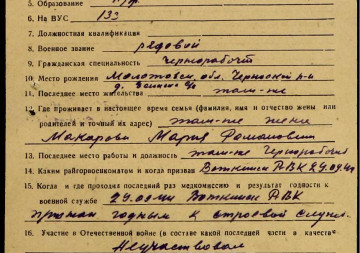 5. Образование
6. На ВУС 133
7. Должностная квалификация
8. Военное звание рядовой
9. Гражданская специальность чернорабоч
10. Место рождения Молотовск. обл. Черновской р-н
11. Последнее место жительства там-же
12. Где проживает в настоящее время семья (фамилия, имя и отчество жены или
родителей и точный их адрес) там-же жена
Макарова Мария Романовна
13. Последнее место работы и должность там-же Чернорабочий
14. Каким райгорвоенкоматом и когда призван Воткинск РВК 29.04.44
15. Когда и где проходил последний раз медкомиссию и результат годности к
военной службе 29.04.44 Воткинск РВК
признан годным к строевой службе
16. Участие в Отечественной войне (в составе какой последней части в качестве
Не участвовал